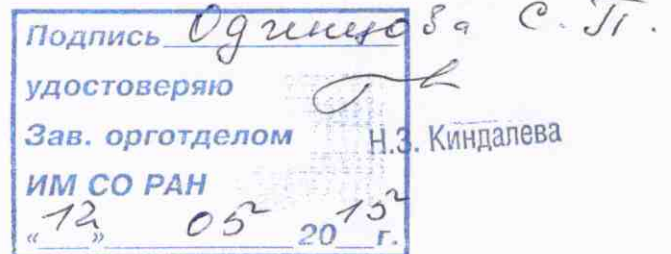 Подпись Одинцова С. П.
удостоверяю
Зав. орготделом Н.З. Киндалева
ИМ СО РАН
«12» 05 2015 г.